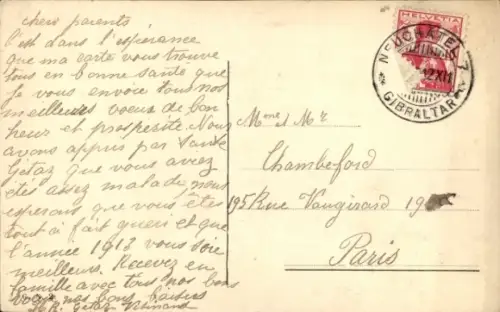 chers parents
c'est dans l'esperance
que ma carte vous trouve
tous en bonne sante que
je vous envoie tous nos
meilleurs voeux de bon
heur et prosperite. Nous
avons appris par Tante
Getaz que vous avez
étés assez malade nous
esperons que vous êtes
tout à fait gueri et que
l'année 1913 vous soie
meilleurs. Recevez en
famille avec tous nos bons
voeux nos bons baisers
Getaz
HELVETIA
NEUCHATEL
XII
GIBRALTAR
Mme et Mr
Chambeford
195 Rue Vaugirard 19
Paris